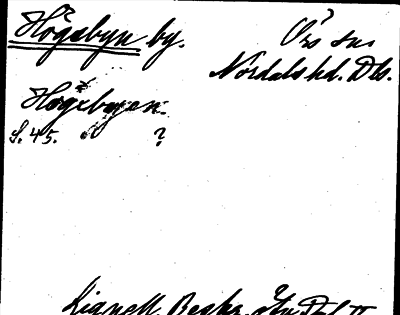 Högsbyn by. Örs sn.
Nordals hd. Dls.
Högsbyen.
S. 45. ?
Lignell Beskr. öfv. Dal II